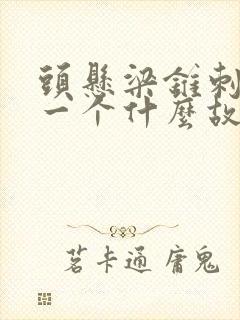 頭懸梁錐刺
一个什麽故
茗卡通 庸鬼